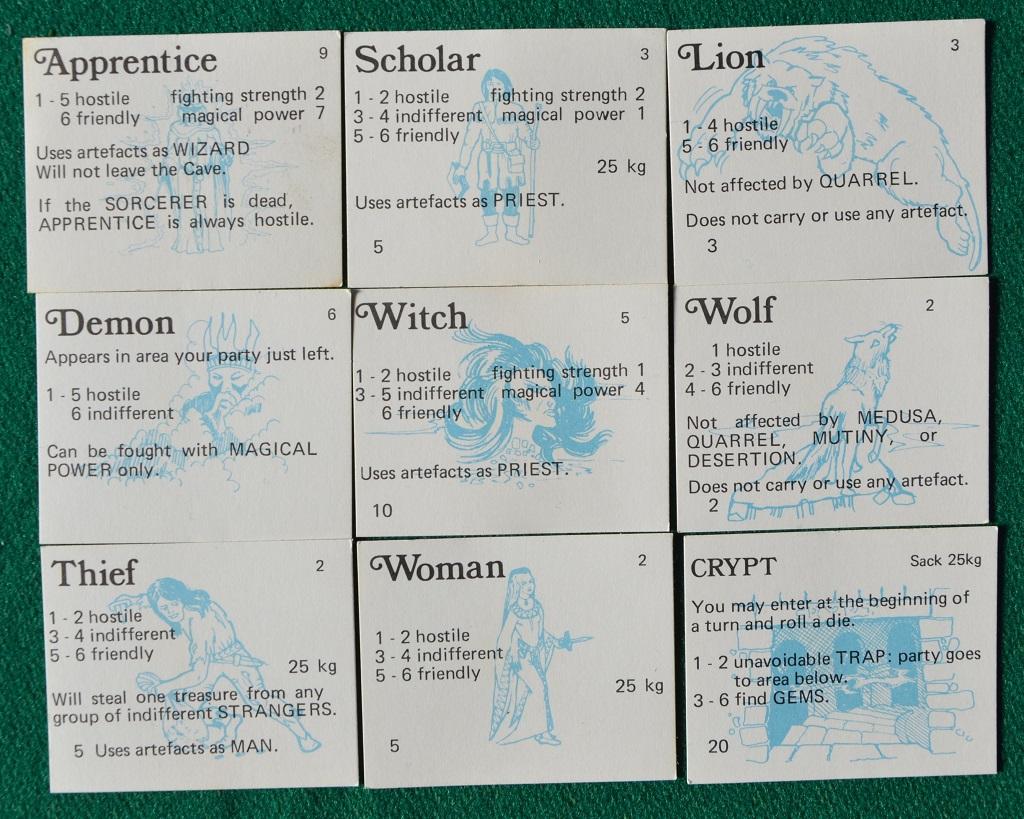 Apprentice 9
1 - 5 hostile fighting strength 2
6 friendly magical power 7
Uses artefacts as WIZARD
Will not leave the Cave.
If the SORCERER is dead,
APPRENTICE is always hostile.
Scholar 3
1 - 2 hostile fighting strength 2
3 - 4 indifferent magical power 1
5 - 6 friendly
25 kg
Uses artefacts as PRIEST.
5
Lion 3
1 - 4 hostile
5 - 6 friendly
Not affected by QUARREL.
Does not carry or use any artefact.
3
Demon 6
Appears in area your party just left.
1 - 5 hostile
6 indifferent
Can be fought with MAGICAL
POWER only.
Witch 5
1 - 2 hostile fighting strength 1
3 - 5 indifferent magical power 4
6 friendly
Uses artefacts as PRIEST.
10
Wolf 2
1 hostile
2 - 3 indifferent
4 - 6 friendly
Not affected by MEDUSA,
QUARREL, MUTINY, or
DESERTION.
Does not carry or use any artefact.
2
Thief 2
1 - 2 hostile
3 - 4 indifferent
5 - 6 friendly
25 kg
Will steal one treasure from any
group of indifferent STRANGERS.
5 Uses artefacts as MAN.
Woman 2
1 - 2 hostile
3 - 4 indifferent
5 - 6 friendly
25 kg
5
CRYPT Sack 25kg
You may enter at the beginning of
a turn and roll a die.
1 - 2 unavoidable TRAP: party goes
to area below.
3 - 6 find GEMS.
20